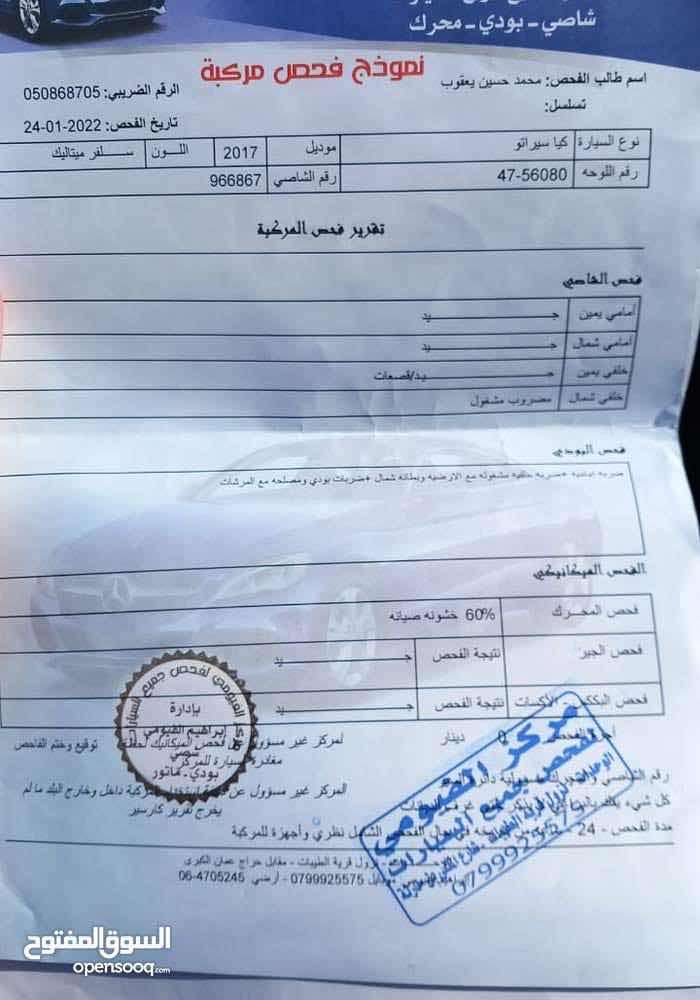 شاصي - بودي - محرك
نموذج فحص مركبة
اسم طالب الفحص: محمد حسين يعقوب
الرقم الضريبي: 050868705
تسلسل:
تاريخ الفحص: 2022-01-24
نوع السيارة كيا سيراتو موديل 2017 اللون سلفر ميتاليك
رقم اللوحه 47-56080 رقم الشاصي 966867
تقرير فحص المركبة
فحص الشاصي
أمامي يمين جيد
أمامي شمال جيد
خلفي يمين جيد/قصعات
خلفي شمال مضروب مشغول
فحص البودي
ضربه اماميه +ضربه خلفيه مشغوله مع الارضيه وبطانه شمال +ضربات بودي ومصلحه مع المرشات
الفحص الميكانيكي
فحص المحرك 60% خشونه صيانه
فحص الجير نتيجة الفحص جيد
فحص البككس - الأكسات نتيجة الفحص جيد
أجرة الفحص 0 دينار
المركز غير مسؤول عن فحص الميكانيك لحظة
مغادرة السيارة للمركز
توقيع وختم الفاحص
المركز غير مسؤول عن المركبة داخل وخارج البلد ما لم
يخرج تقرير كارسير
رقم الشاصي
كل شيء
مدة الفحص - 24 مجال الفحص الشامل نظري وأجهزة للمركبة
بترول قرية الطيبات - مقابل حراج عمان الكبرى
0799925575 - أرضي 06-4705245
مركز الفيومي لفحص جميع السيارات
بإدارة
إبراهيم الفيومي
شصي
بودي - ماتور
مركز الفيومي
لفحص جميع السيارات
0799925575
السوق المفتوح
opensooq.com